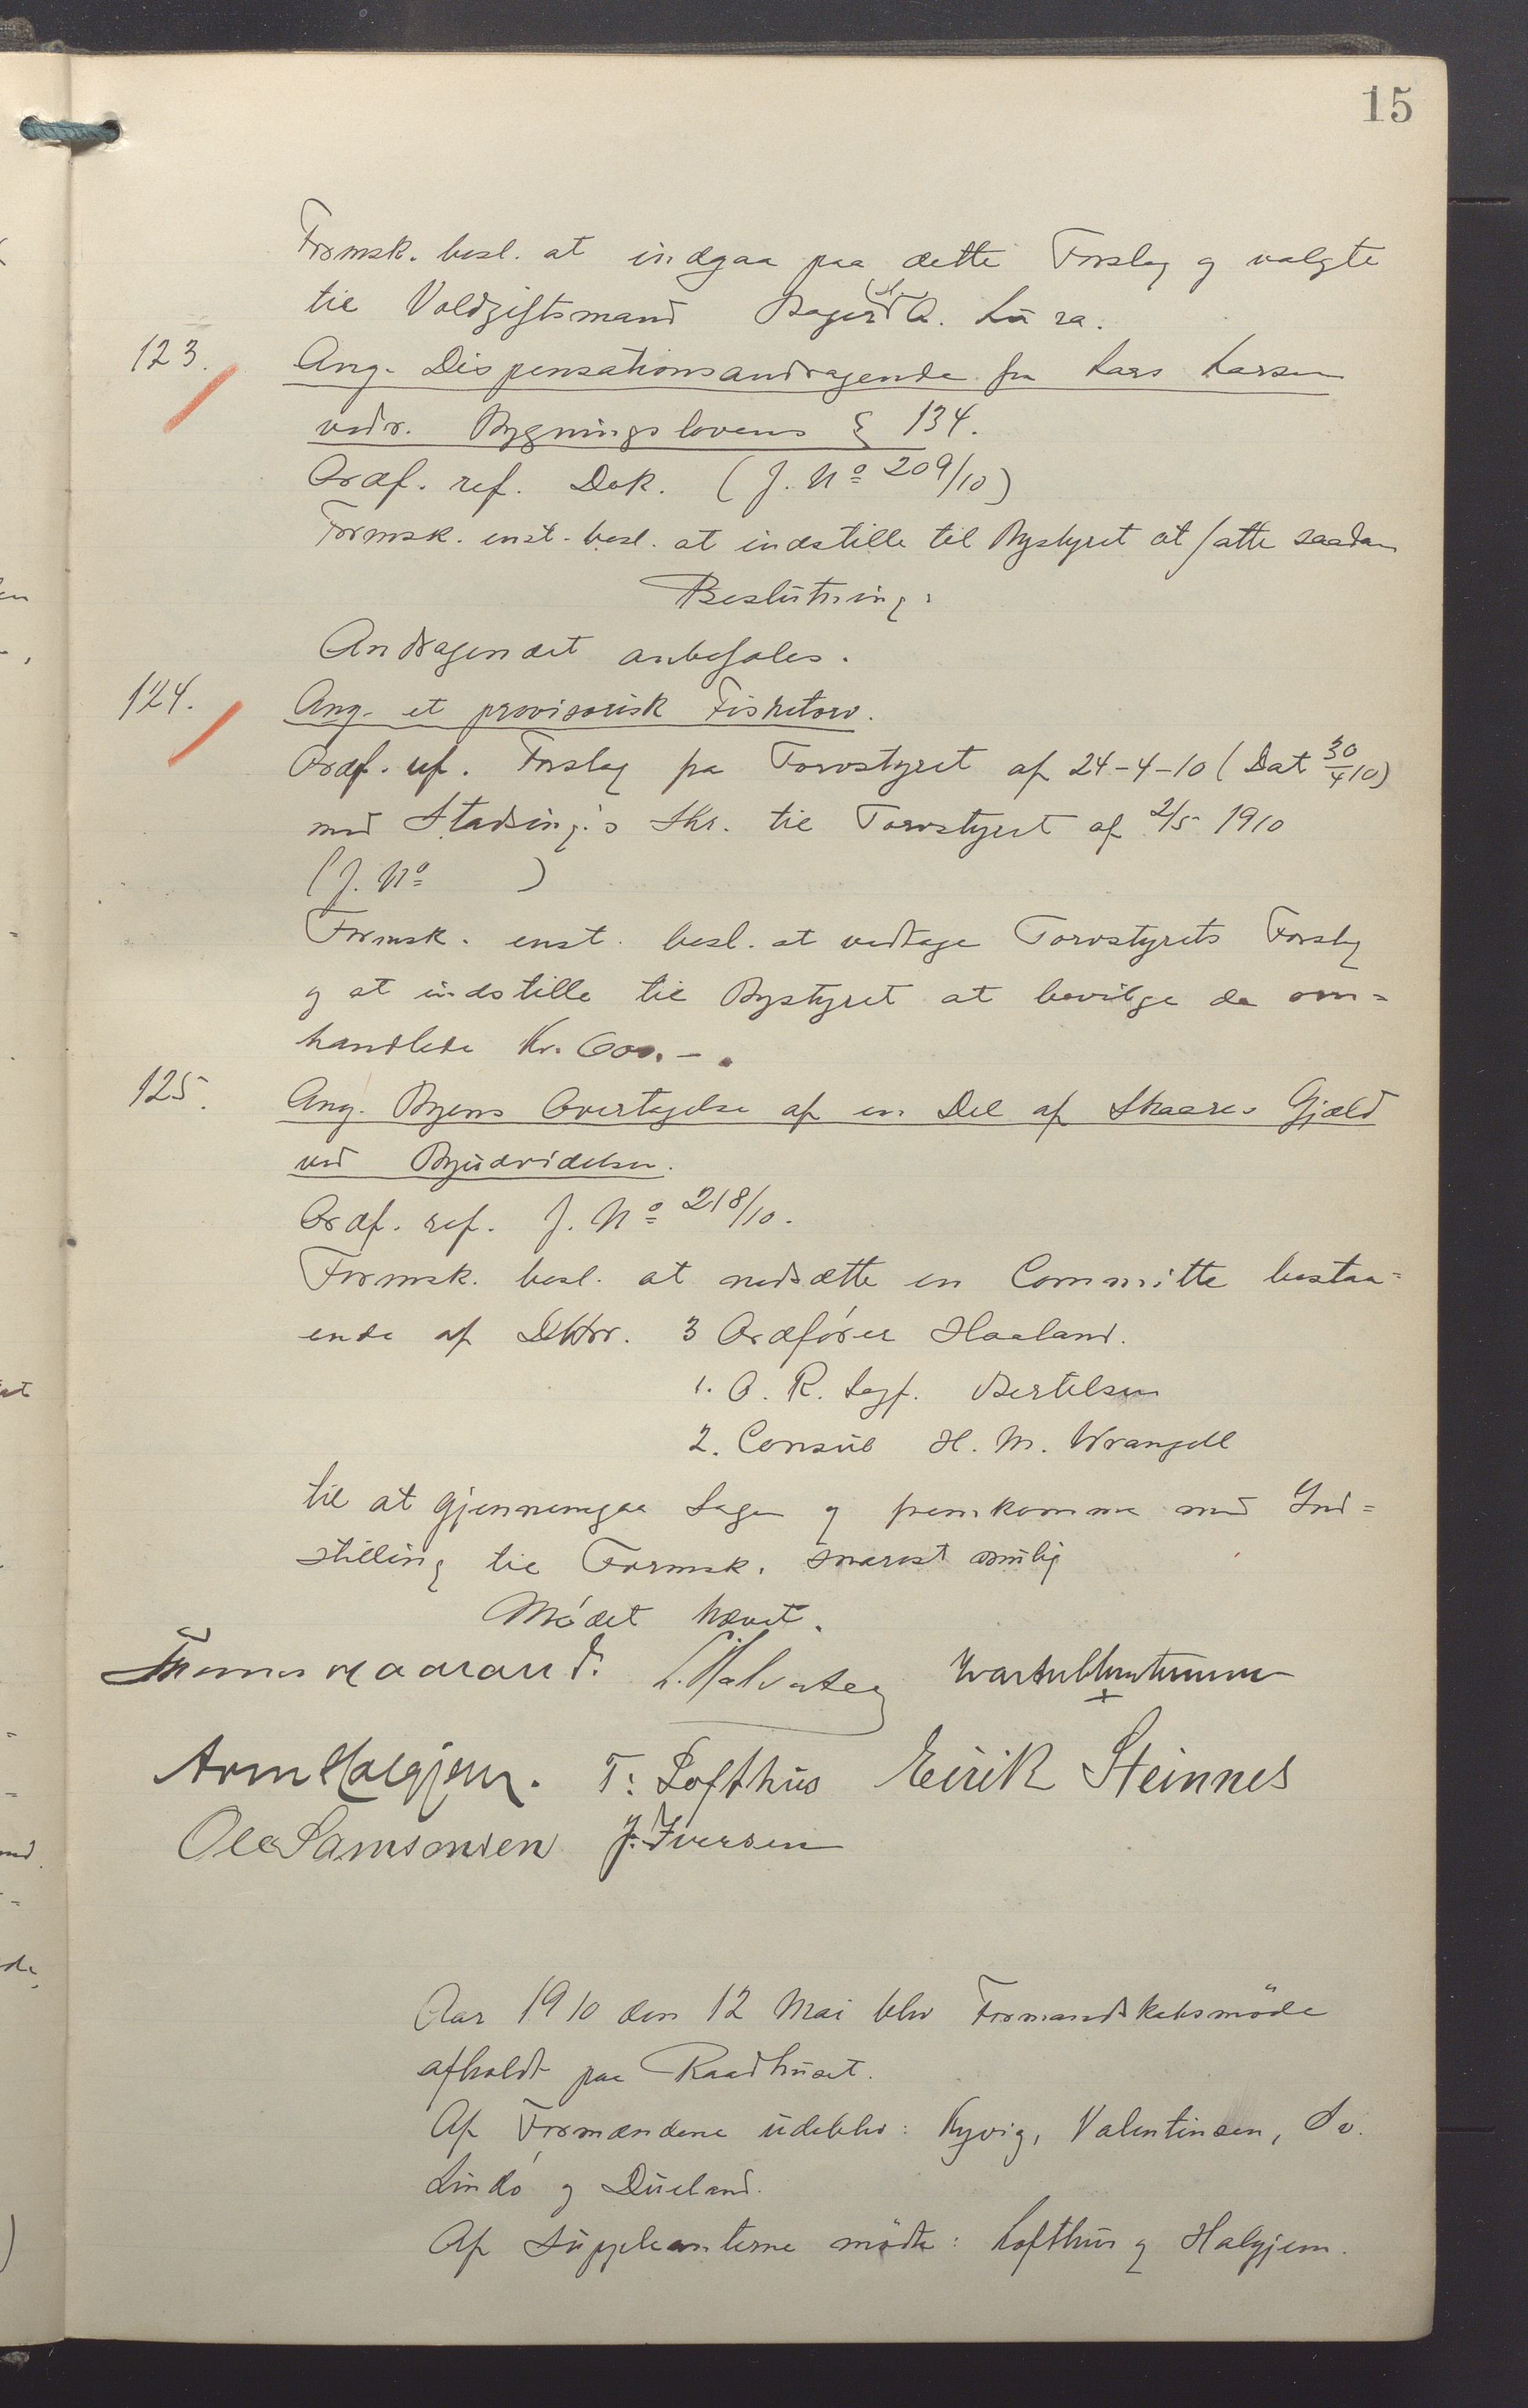 15
Formsk. besl. at indgaa paa dette Forslag og valgte
til Voldgiftsmand Bager A. Lura.
123.
Ang. Dispensationsandragende fra Lars Larsen
vedr. Bygningslovens § 134.
Ordf. ref. Dok. (J. Nº 209/10)
Formsk. enst. besl. at indstille til Bystyret at fatte saadan
Beslutning:
Andragendet anbefales.
124.
Ang. et provisorisk Fisketorv.
Ordf. ref. Forslag fra Torvstyret af 24-4-10 (Dat 30/4 10)
med Stadsing.'s Skr. til Torvstyret af 2/5 1910
(J. Nº )
Formsk. enst. besl. at vedtage Torvstyrets Forslag
og at indstille til Bystyret at bevilge de om=
handlede Kr. 600.-.
125.
Ang. Byens Overtagelse af en Del af Skaares Gjæld
ved Byudvidelsen.
Ordf. ref. J. Nº 218/10.
Formsk. besl. at nedsætte en Committe bestaa=
ende af DHrr. 3 Ordfører Haaland.
1. O. R. Sagf. Bertelsen
2. Consul H. M. Wrangell
til at gjennemgaa Sagen og fremkomme med Ind=
stilling til Formsk. snarest mulig
Mødet hævet.
Haaland. L. Valentinsen
Arne Halgjem. T. Lofthus Eirik Steinnes
Ole Samsonsen J. Iversen
Aar 1910 den 12 Mai blev Formandskabsmøde
afholdt paa Raadhuset.
Af Formændene udeblev: Kyvig, Valentinsen, Sv.
Lindø og Dueland.
Af Suppleanterne mødte: Lofthus og Halgjem.